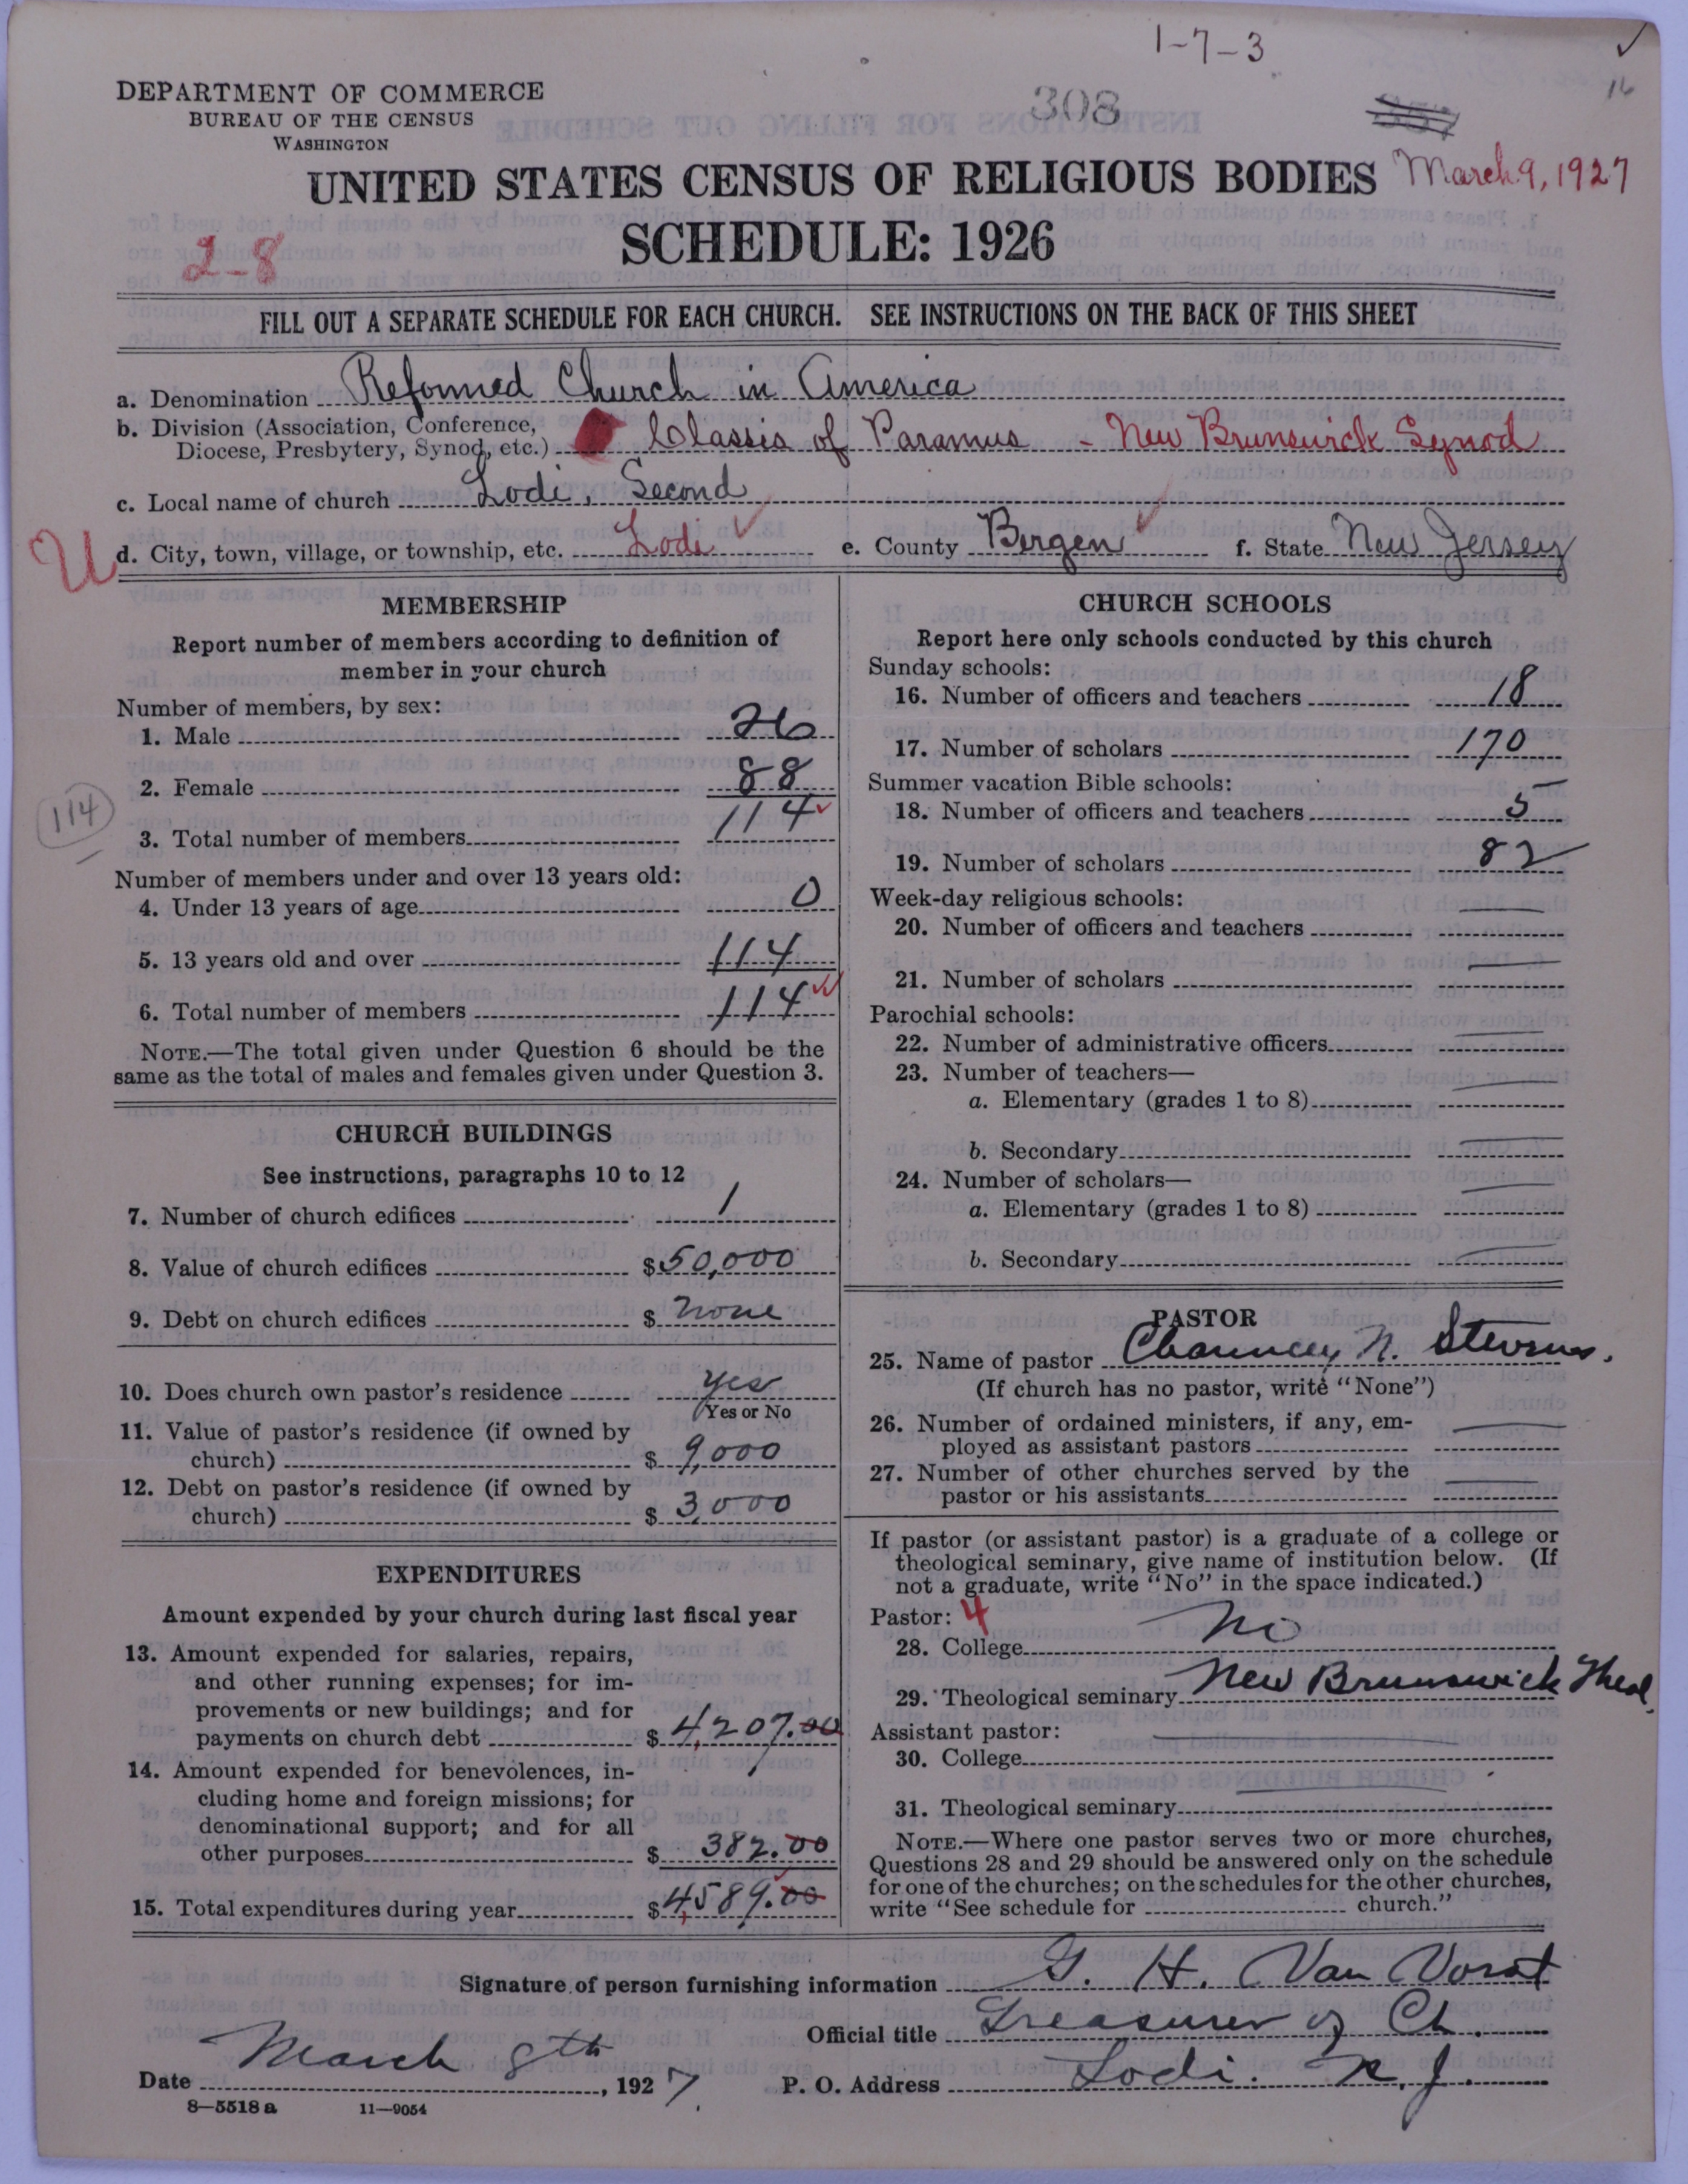 1-7-3
✓
16
DEPARTMENT OF COMMERCE
BUREAU OF THE CENSUS
WASHINGTON
308
357
UNITED STATES CENSUS OF RELIGIOUS BODIES
March 9, 1927
SCHEDULE: 1926
2-8
FILL OUT A SEPARATE SCHEDULE FOR EACH CHURCH. SEE INSTRUCTIONS ON THE BACK OF THIS SHEET
a. Denomination Reformed Church in America
b. Division (Association, Conference,
Diocese, Presbytery, Synod, etc.) Classis of Paramus - New Brunswick Synod
c. Local name of church Lodi, Second
U
d. City, town, village, or township, etc. Lodi ✓ e. County Bergen ✓ f. State New Jersey
MEMBERSHIP
Report number of members according to definition of
member in your church
Number of members, by sex:
1. Male 26
2. Female 88
114
3. Total number of members 114 ✓
Number of members under and over 13 years old:
4. Under 13 years of age 0
5. 13 years old and over 114
6. Total number of members 114 ✓
NOTE.—The total given under Question 6 should be the
same as the total of males and females given under Question 3.
CHURCH BUILDINGS
See instructions, paragraphs 10 to 12
7. Number of church edifices 1
8. Value of church edifices $50,000
9. Debt on church edifices $ None
10. Does church own pastor's residence yes
Yes or No
11. Value of pastor's residence (if owned by
church) $ 9,000
12. Debt on pastor's residence (if owned by
church) $ 3,000
EXPENDITURES
Amount expended by your church during last fiscal year
13. Amount expended for salaries, repairs,
and other running expenses; for im-
provements or new buildings; and for
payments on church debt $ 4,207.00
14. Amount expended for benevolences, in-
cluding home and foreign missions; for
denominational support; and for all
other purposes $ 382.00
15. Total expenditures during year $4,589.00
CHURCH SCHOOLS
Report here only schools conducted by this church
Sunday schools:
16. Number of officers and teachers 18
17. Number of scholars 170
Summer vacation Bible schools:
18. Number of officers and teachers 5
19. Number of scholars 82
Week-day religious schools:
20. Number of officers and teachers —
21. Number of scholars —
Parochial schools:
22. Number of administrative officers —
23. Number of teachers—
a. Elementary (grades 1 to 8) —
b. Secondary —
24. Number of scholars—
a. Elementary (grades 1 to 8) —
b. Secondary —
PASTOR
25. Name of pastor Chauncey N. Stevens.
(If church has no pastor, write "None")
26. Number of ordained ministers, if any, em-
ployed as assistant pastors —
27. Number of other churches served by the
pastor or his assistants —
If pastor (or assistant pastor) is a graduate of a college or
theological seminary, give name of institution below. (If
not a graduate, write "No" in the space indicated.)
Pastor: 4
28. College No
29. Theological seminary New Brunswick Theol.
Assistant pastor:
30. College —
31. Theological seminary —
NOTE.—Where one pastor serves two or more churches,
Questions 28 and 29 should be answered only on the schedule
for one of the churches; on the schedules for the other churches,
write "See schedule for church."
Signature of person furnishing information G. H. Van Vorst
Official title Treasurer of Ch.
Date March 8th, 1927. P. O. Address Lodi. N. J.
8—5518 a 11—9054